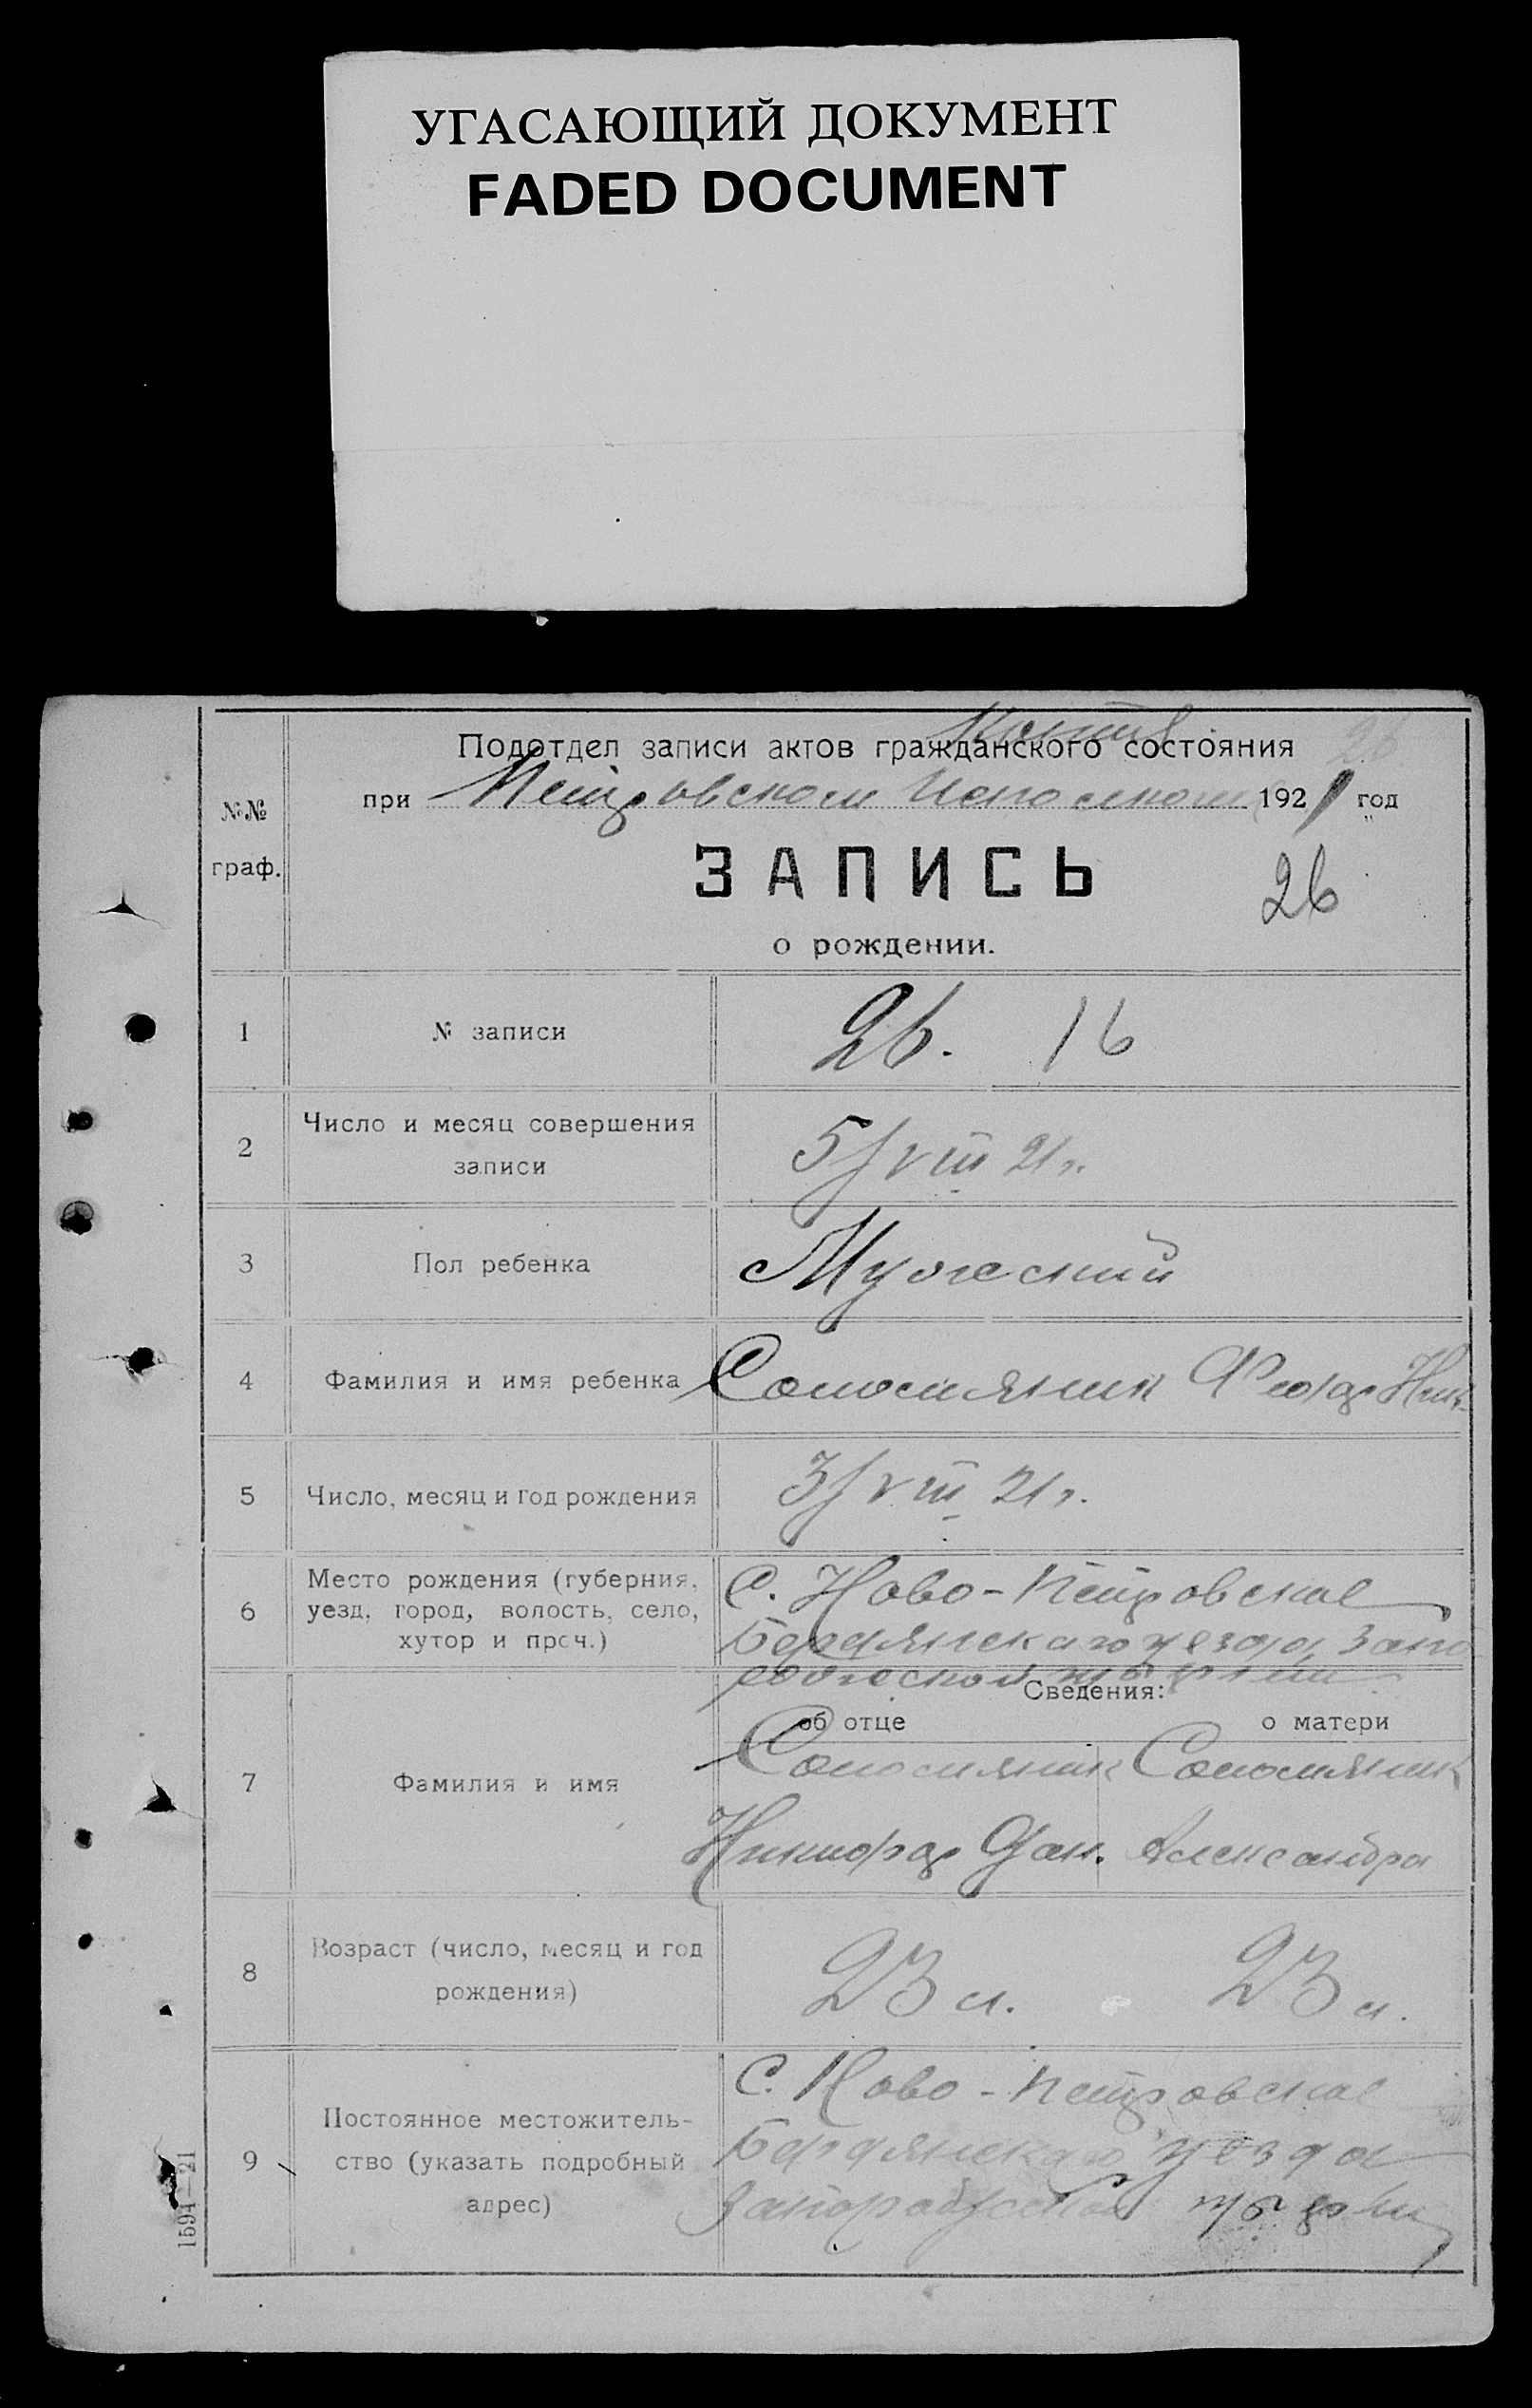 УГАСАЮЩИЙ ДОКУМЕНТ
FADED DOCUMENT
26
Подотдел записи актов гражданского состояния
при Петровском 1921 год
№№
граф.
ЗАПИСЬ
26
о рождении.
1 № записи 26. 16
2 Число и месяц совершения
записи
5/VIII 21 г.
3 Пол ребенка Мужеский
4 Фамилия и имя ребенка Соломяник Федор Ник.
5 Число, месяц и год рождения 3/VIII 21 г.
6 Место рождения (губерния,
уезд, город, волость, село,
хутор и проч.)
С. Ново-Петровское
Бердянскаго уезда Запо
рожской губернии
Сведения:
об отце о матери
7 Фамилия и имя
Соломяник Соломяник
Никифор Дан. Александра
8 Возраст (число, месяц и год
рождения)
23 л. 23 л.
9 Постоянное местожитель-
ство (указать подробный
адрес)
С. Ново-Петровское
Бердянскаго уезда
Запорожской губернии
1594—21